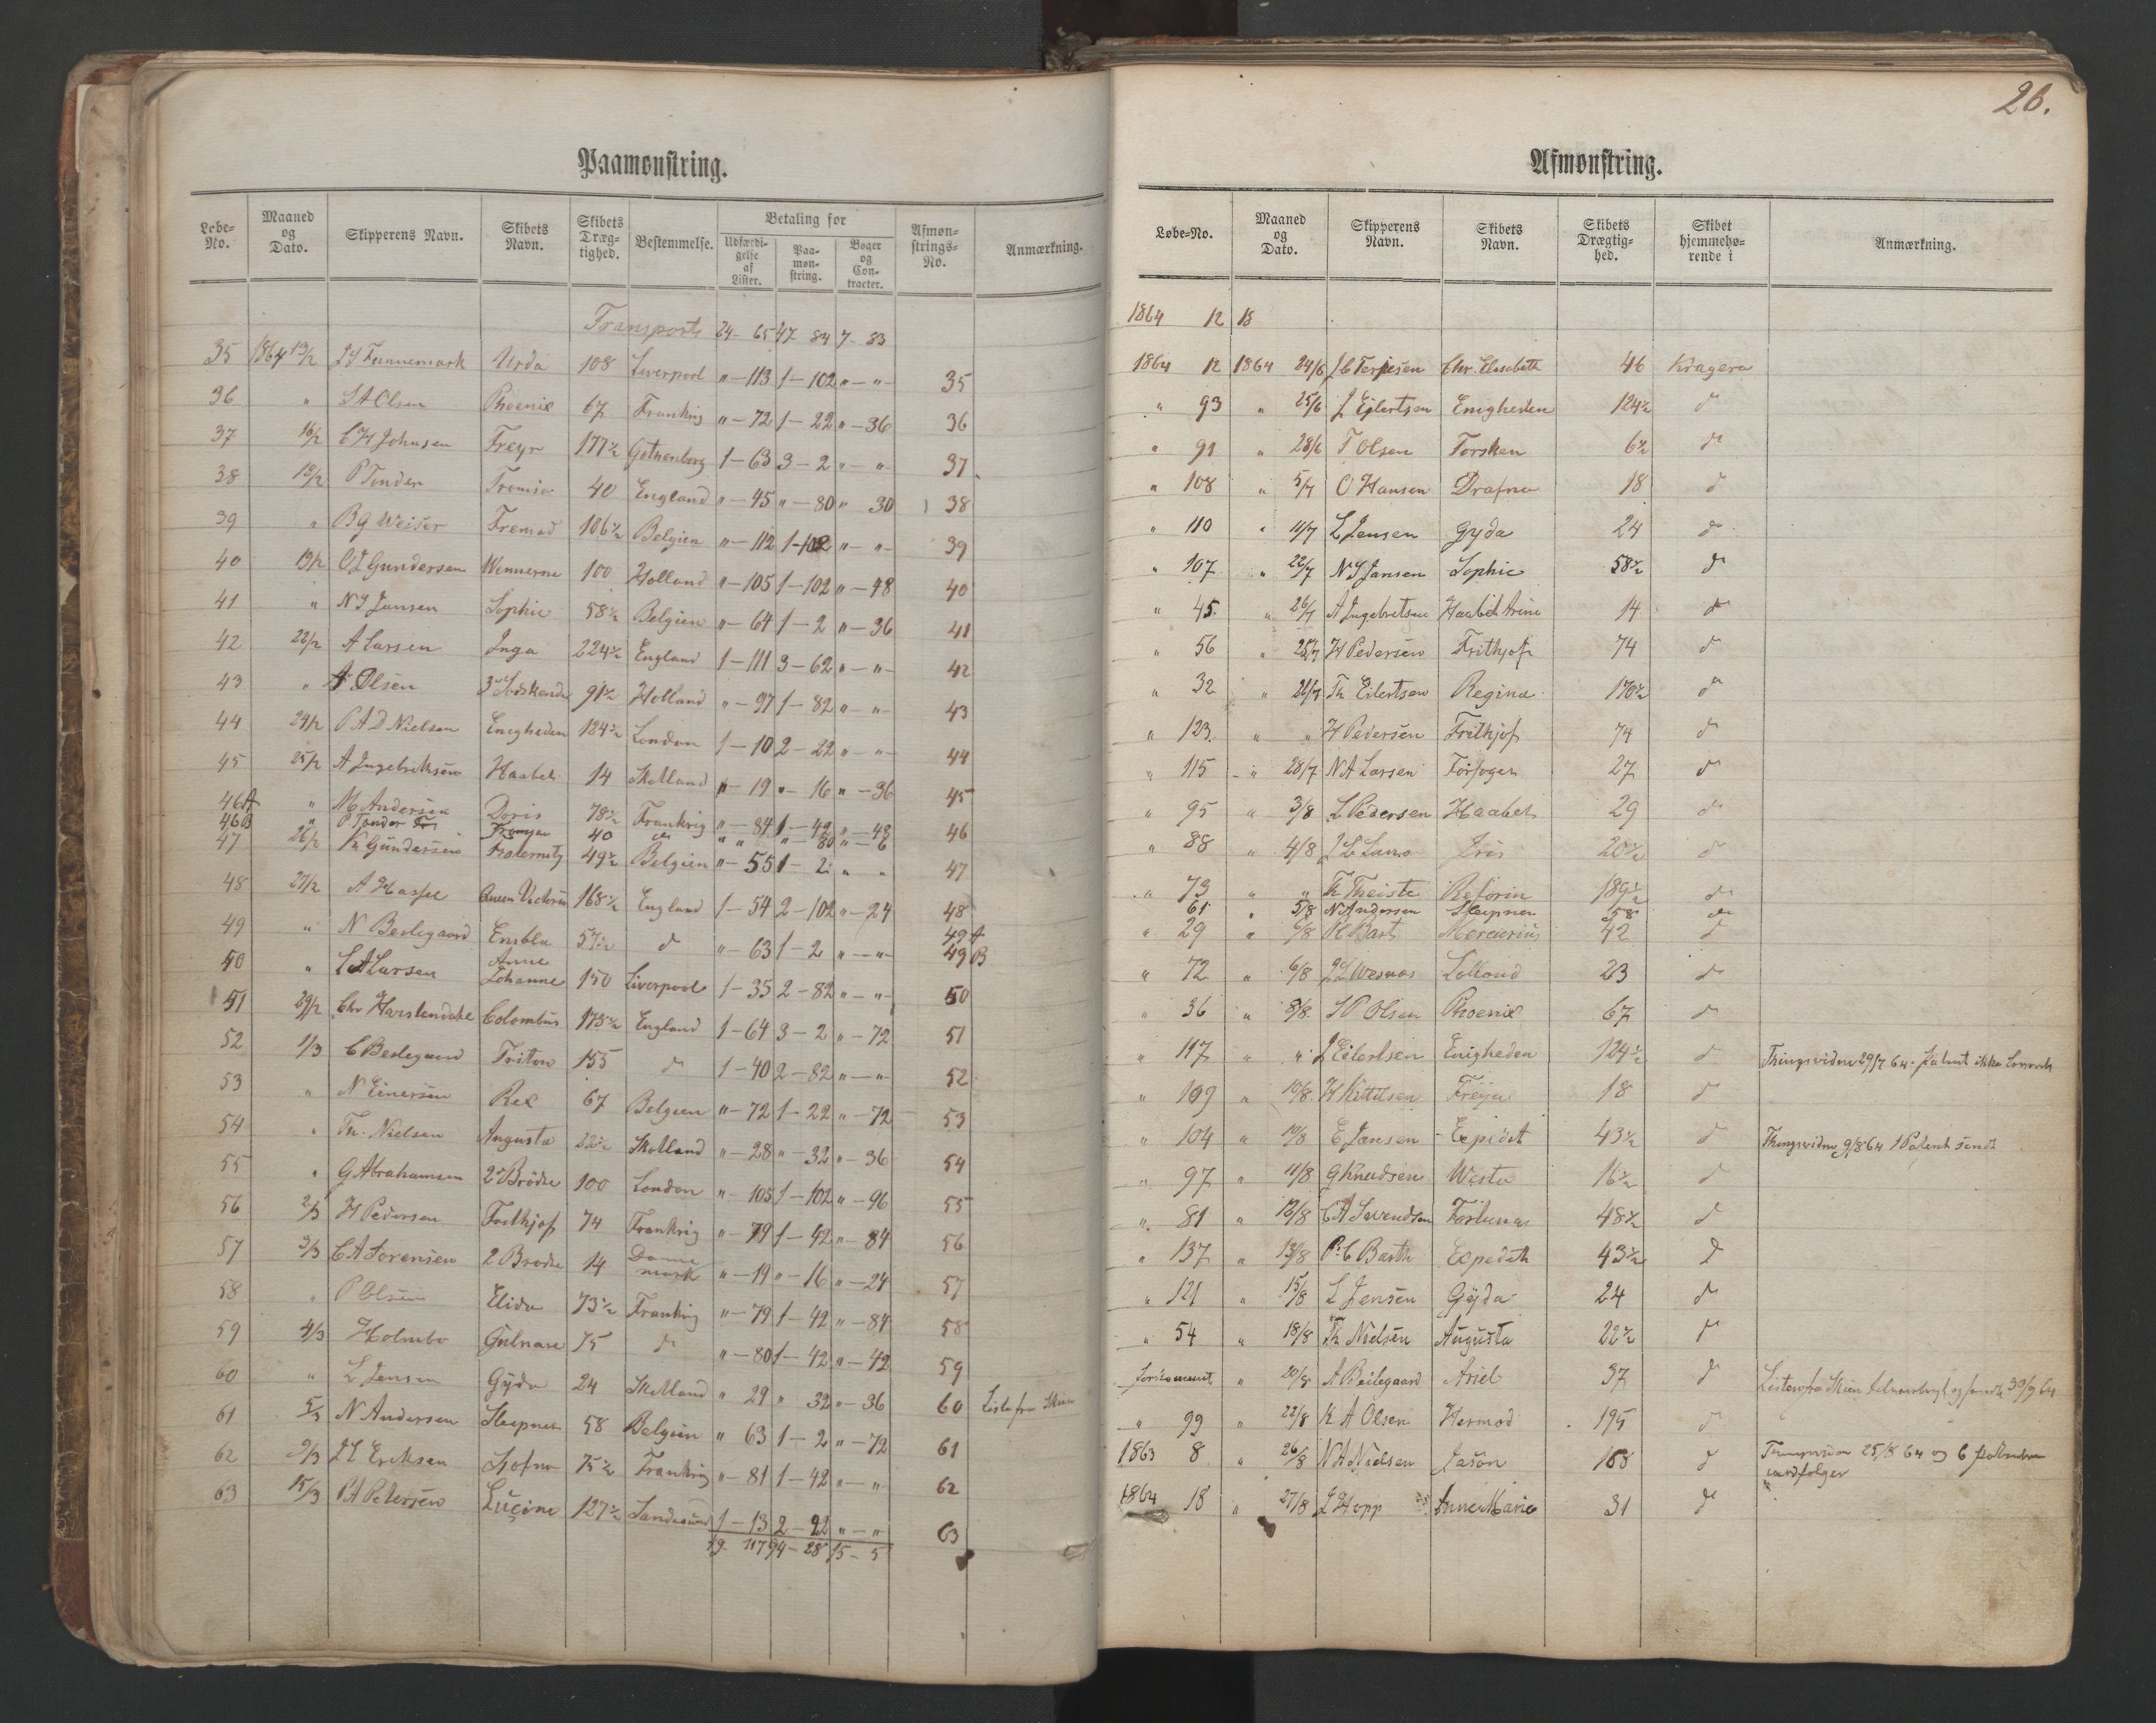 Paamonstring.
Løbe-No. Maaned og Dato. Skipperens Navn. Skibets Navn. Skibets Dræg-tighed. Bestemmelse. Betaling for Udfærdi-gelse af Lister. Paa-møn-string. Bøger og Con-tracter. Afmøn-strings-No. Anmærkning.
Transport 24-65 47-84 7-83
35 1864 13/2 Urda 108 Liverpool "-113 1-102 "-" 35
36 " S A Olsen Phoenix 67 Frankrig "-72 1-22 "-36 36
37 16/2 C H Johnsen Freyr 177½ Gothenborg 1-63 3-2 "-" 37
38 18/2 P Tonder Tromsø 40 England "-45 "-80 " 30 38
39 " B G Weiser Fremad 106½ Belgien "-112 1-102 "-" 39
40 19/2 O L Gundersen 100 Holland "-105 1-102 "-48 40
41 " N J Jansen Sophie 58½ Belgien "-64 1-2 "-36 41
42 22/2 A Larsen Inga 224½ England 1-111 3-62 "-" 42
43 " A Olsen 3 Sodskende 91½ Holland "-97 1-82 "-" 43
44 24/2 P A D Nielsen Enigheden 124½ London 1-10 2-22 "-" 44
45 25/2 A Ingebriktsen Haabet 14 Skotland "-19 "-16 "-36 45
46A " M Andersen Doris 78½ Frankrig "-84 1-42 "-48 46
46B " P Tonder Tromsø 40 " " "-80 "-6
47 26/2 Gundersen Fraternity 49½ Belgien "-55 1-2 " " 47
48 27/2 A Hassel Queen Victoria 168½ England 1-54 2-102 "-24 48
49 " N Beslegaard Ensbla 57½ d "-63 1-2 "-" 49A
49B
50 " L A Larsen Anne Johanne 150 Liverpool 1-35 2-82 "-" 50
51 29/2 Chr Colombus 175½ England 1-64 3-2 "-72 51
52 1/3 C Beslegaard Triton 155 d 1-40 2-82 "-" 52
53 " N Einersen Rex 67 Belgien "-72 1-22 "-72 53
54 " Th. Nielsen Augusta 22½ Skotland "-28 "-32 "-36 54
55 " G Abrahamsen 2 Brødre 100 London "-105 1-102 "-96 55
56 2/3 H Pedersen Frithjof 74 Frankrig "-79 1-42 "-84 56
57 3/3 C A Sorensen 2 Brodre 14 Danne mark "-19 "-16 "-24 57
58 " P Olsen Elida 73½ Frankrig "-79 1-42 "-84 58
59 4/3 Holmbo Gulnare 75 d "-80 1-42 "-42 59
60 " L Jensen Gyda 24 Skotland " 29 " 32 "-36 60 Liste fra Skien
61 5/3 N Andersen Sleipner 58 Belgien " 63 1-2 "-72 61
62 9/3 Eriksen 75½ Frankrig "-81 1-42 "-" 62
63 15/3 P A Petersen Lucine 127½ Sandesund 1-13 2-22 "-" 63
19-117 94-28 15-5
26.
Afmonstring.
Løbe-No. Maaned og Dato. Skipperens Navn. Skibets Navn. Skibets Drægtig-hed. Skibet hjemmehø-rende i Anmærkning.
1864 12 18
1864 12 1864 24/6 J C Terjesen Chr. Elisabeth 46 Kragerø
" 93 " 25/6 J Eilertsen Enigheden 124½ d
" 91 " 28/6 T Olsen Forsken 6½ d
" 108 " 5/7 O Hansen Drafna 18 d
" 110 " 11/7 L Jensen Gyda 24 d
" 107 " 22/7 N J Jansen Sophie 58½ d
" 45 " 26/7 A Ingebretsen Haabet 14 d
" 56 " 25/7 H Pedersen Frithjof 74 d
" 32 " 26/7 Th Eilertsen Regina 170½ d
" 123 " " H Pedersen Frithjof 74 d
" 115 " 28/7 N A Larsen Forsoger 27 d
" 95 " 3/8 L Pedersen Haabet 29 d
" 88 " 4/8 Iris 20½ d
" 73 " " Th Theiste Reform 189½ d
61 " 5/8 N Andersen Sleipner 58 d
" 29 " 6/8 Bast Mercurius 42 d
" 72 " 6/8 Lolland 23 d
" 36 " 8/8 S P Olsen Phoenix 67 d
" 117 " " J Eilertsen Enigheden 124½ d Thingsvidne 29/7 64. Patent ikke
" 109 " 10/8 H Kittilsen Freya 18 d
" 104 " 10/8 E Jansen Expidit 43½ d Thingsvidne 9/8 64 1 Patent sendt
" 97 " 11/8 G Knudsen Westa 16½ d
" 81 " 12/8 C A Svendsen Fortuna 48½ d
" 137 " 13/8 P. C Barth Expedit 43½ d
" 121 " 15/8 L Jensen Gyda 24 d
" 54 " 18/8 Th Nielsen Augusta 22½ d
forkommet " 20/8 A Beilegaard Ariel 37 d Listen fra Skien 30/9 64
" 99 " 22/8 K A Olsen Hermod 195 d
1863 8 " 26/8 N A Nielsen Jason 168 d Thingsvidne 25/8 64 og 6
vedfølger
1864 18 " 27/8 L Hopp Anne Marie 31 d